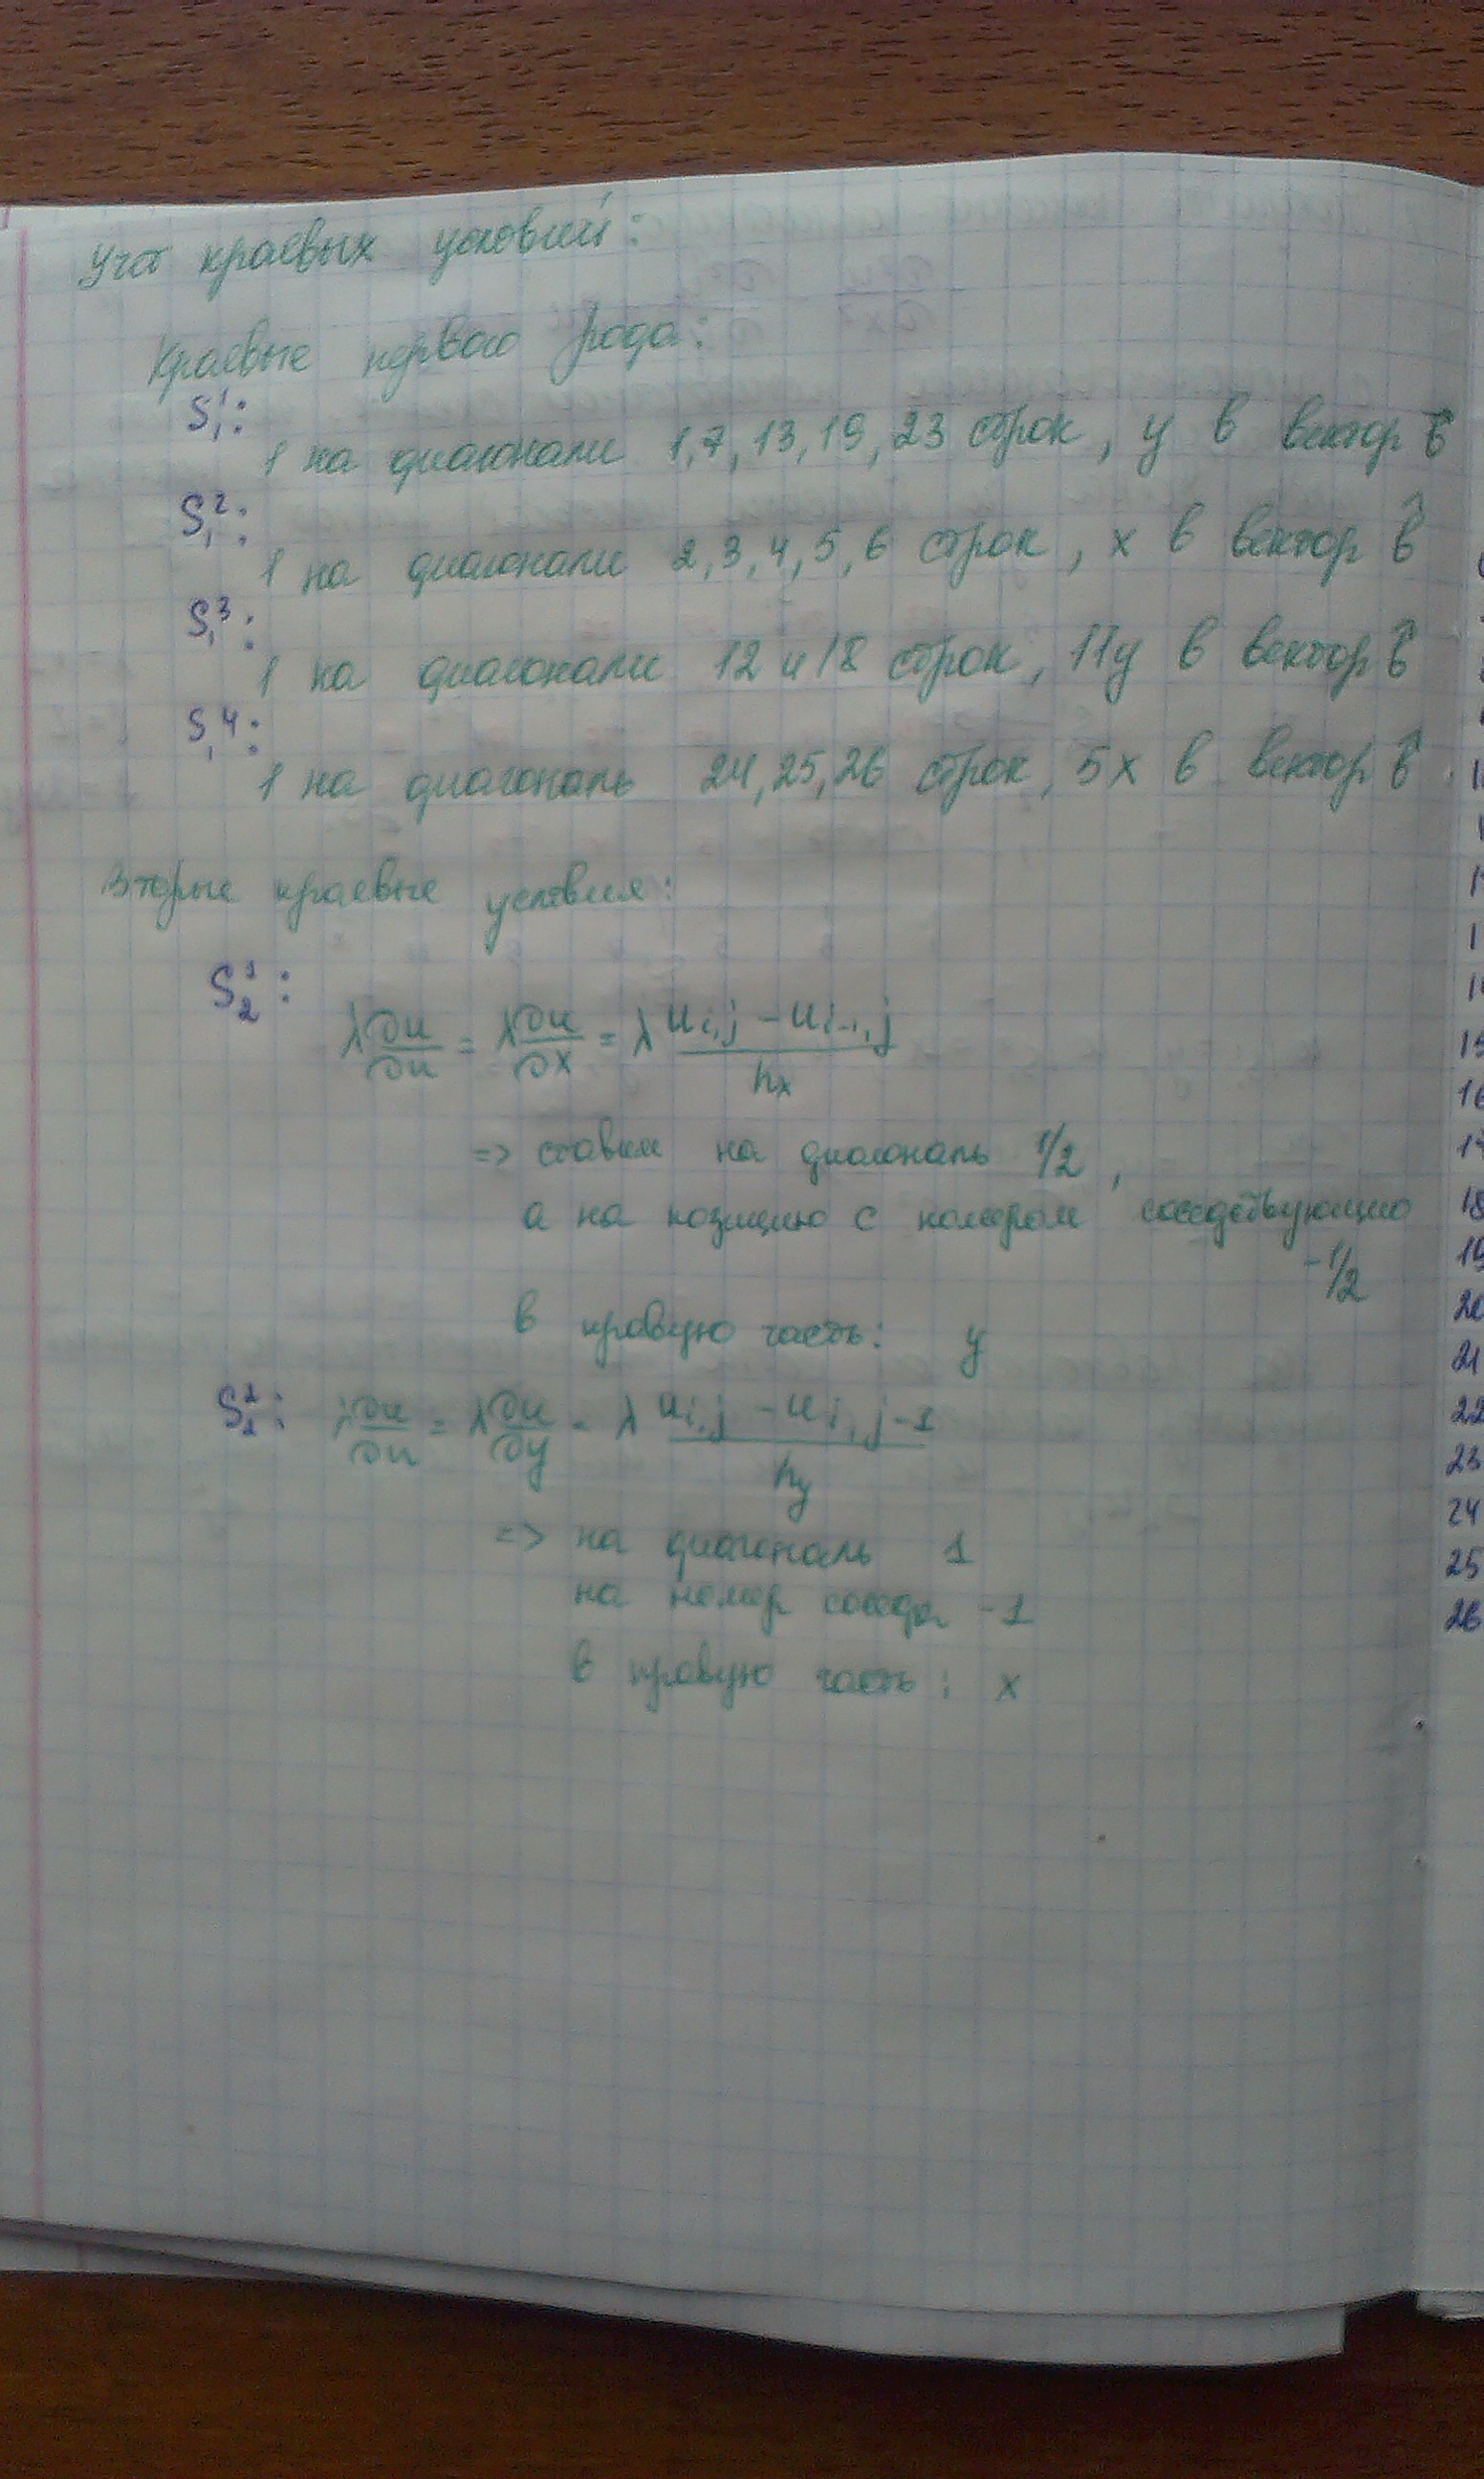 Учёт краевых условий:
Краевые первого рода:
S₁¹:
1 на диагонали 1,7,13,19,23 строк, y в вектор b⃗
S₁²:
1 на диагонали 2,3,4,5,6 строк, x в вектор b⃗
S₁³:
1 на диагонали 12 и 18 строк, 11y в вектор b⃗
S₁⁴:
1 на диагональ 24,25,26 строк, 5x в вектор b⃗
Вторые краевые условия:
S₂¹:
λ ∂u/∂n = λ ∂u/∂x = λ (u i,j − u i-1,j)/hx
=> ставим на диагональ 1/2,
а на позицию с номером соседствующию
-1/2
в правую часть: y
λ ∂u/∂n = λ ∂u/∂y = λ (u i,j − u i,j-1)/hy
=> на диагональ 1
на номер соседа -1
в правую часть: x
15
16
17
18
19
20
21
22
23
24
25
26